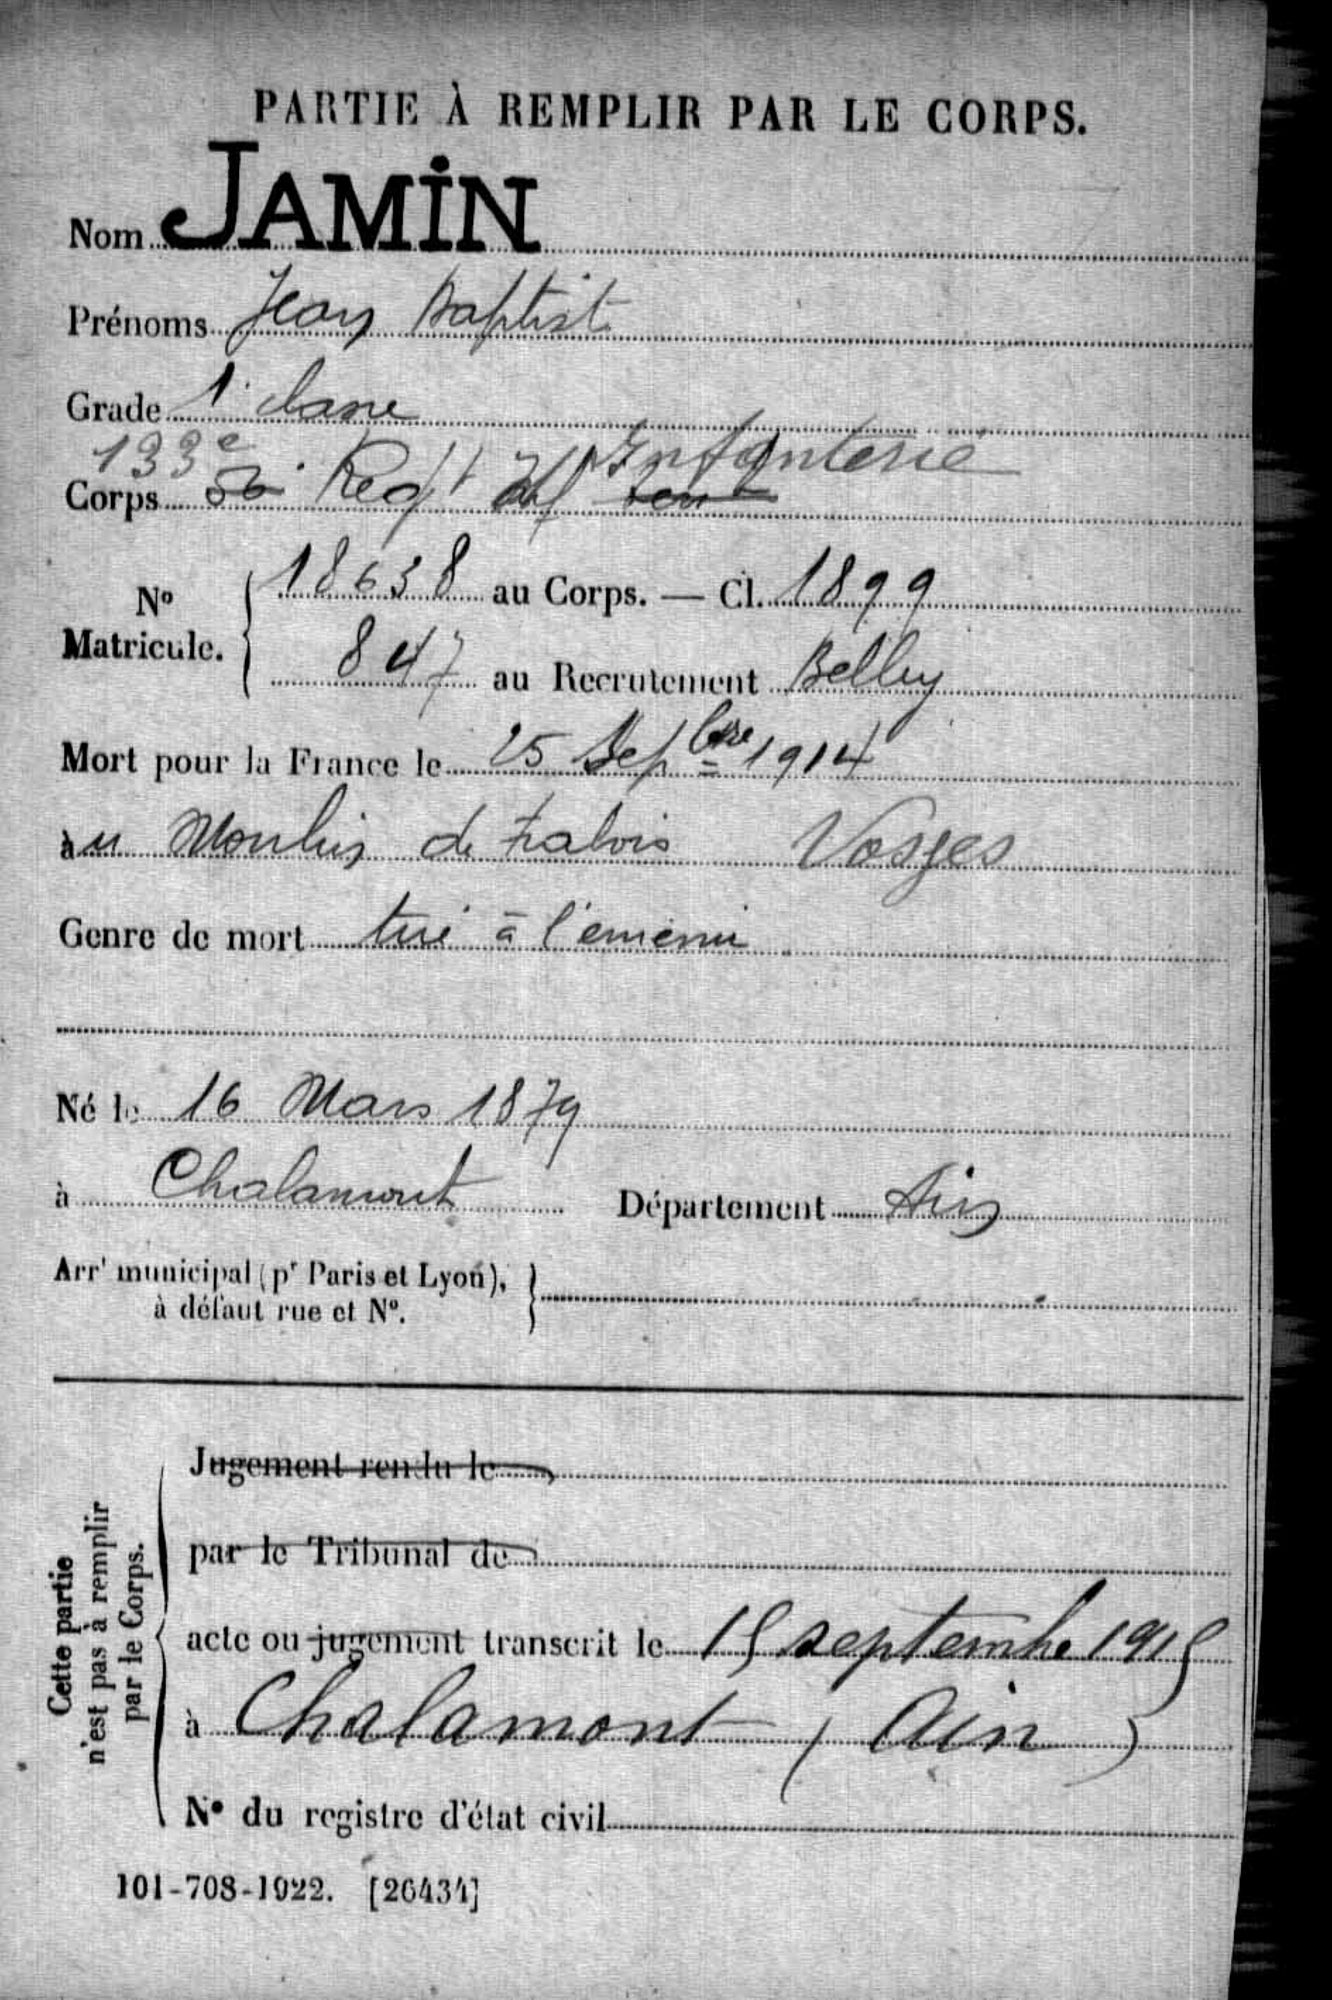 PARTIE À REMPLIR PAR LE CORPS.
Nom JAMIN
Prénoms Jean Baptiste
Grade 1e classe
133e Infanterie
Corps Regt
No Matricule. 18638 au Corps. — Cl. 1899
847 au Recrutement Belley
Mort pour la France le 25 Septbre 1914
au Moulin de Vosges
Genre de mort tué à l'ennemi
Né le 16 Mars 1879
à Chalamont Département Ain
Arrt municipal (pr Paris et Lyon),
à défaut rue et No.
Cette partie
n'est pas à remplir
par le Corps.
Jugement rendu le
par le Tribunal de
acte ou jugement transcrit le 15 septembre 1915
à Chalamont (Ain)
No du registre d'état civil
101-708-1922. [26434]